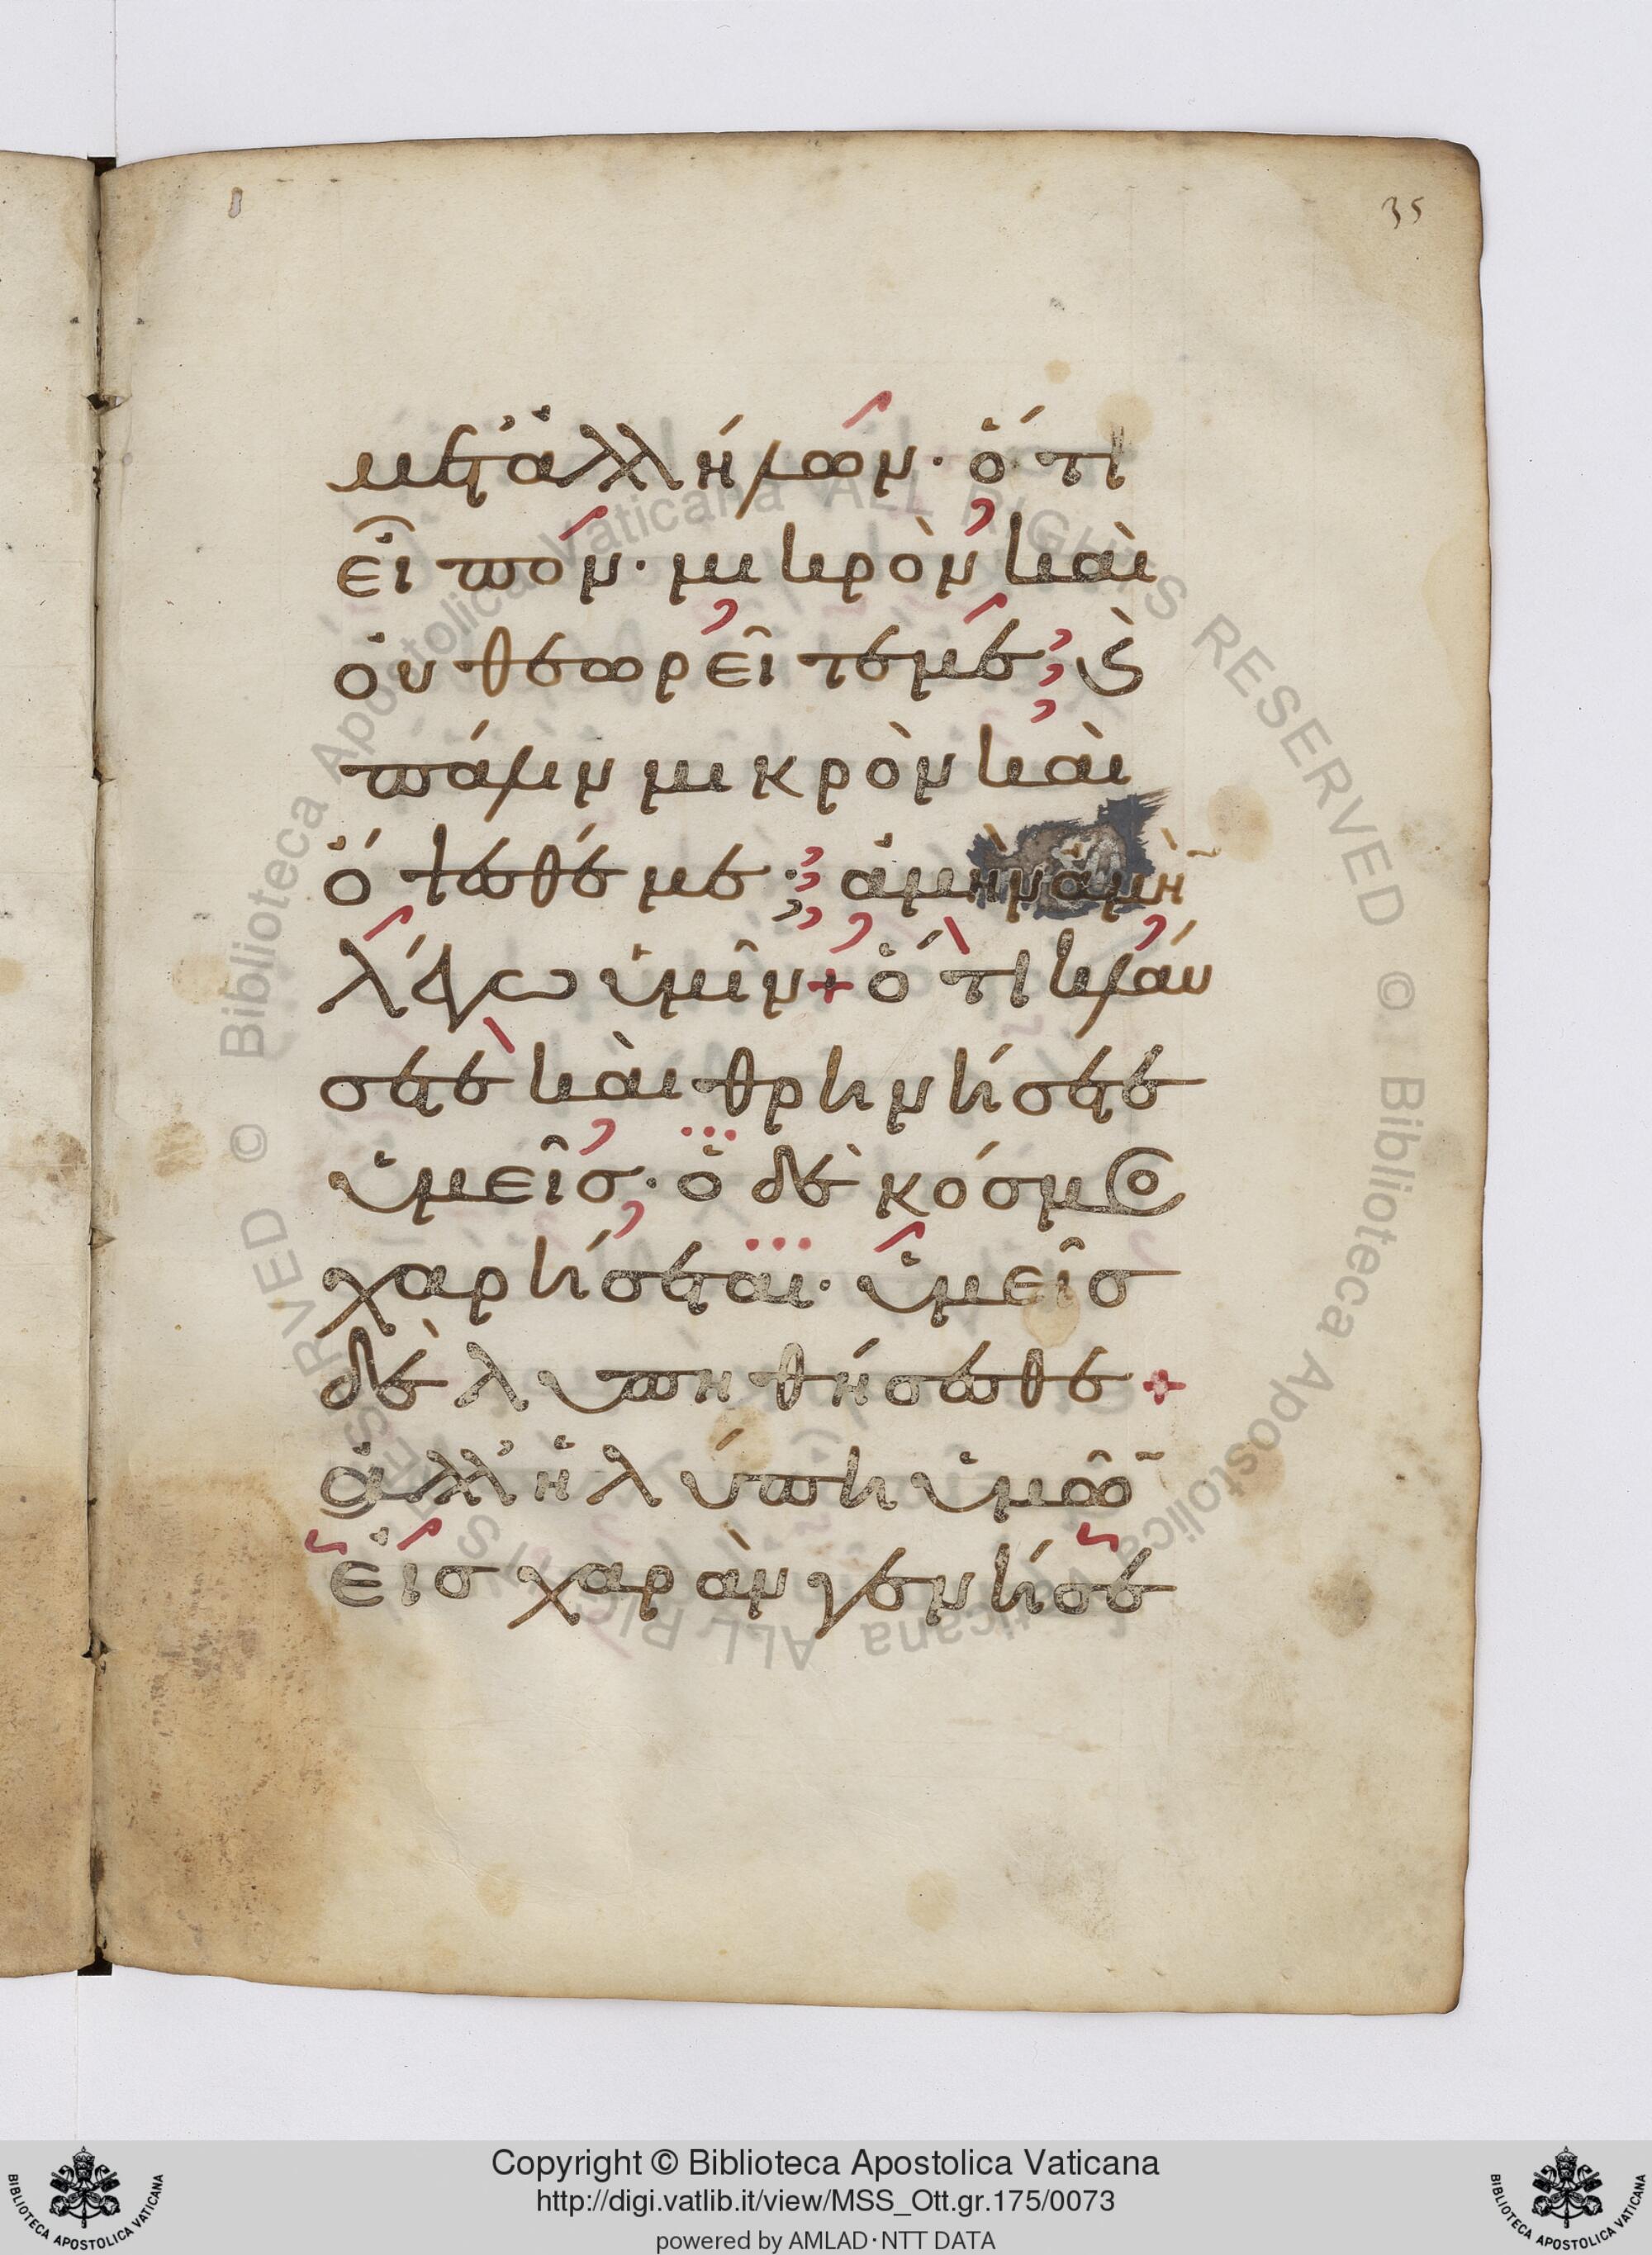 35
μετ' ἀλλήλων· ὅτι
εἶπον· μικρὸν καὶ
οὐ θεωρεῖτέ με; ϛ
πάλιν μικρὸν καὶ
ὄψεσθέ με·; ἀμὴν ἀμὴ̄
λέγω ὑμῖν + ὅτι κλαύ
σετε καὶ θρηνήσετε
ὑμεῖς· ὁ δὲ κόσμος
χαρήσεται· ὑμεῖς
δὲ λυπηθήσεσθε +
ἀλλ' ἡ λύπη ὑμῶ̄
εἰς χαρὰν γενήσε
© Biblioteca Apostolica Vaticana ALL RIGHTS RESERVED
© Biblioteca Apostolica Vaticana ALL RIGHTS RESERVED
Copyright © Biblioteca Apostolica Vaticana
http://digi.vatlib.it/view/MSS_Ott.gr.175/0073
powered by AMLAD·NTT DATA
BIBLIOTECA APOSTOLICA VATICANA
BIBLIOTECA APOSTOLICA VATICANA